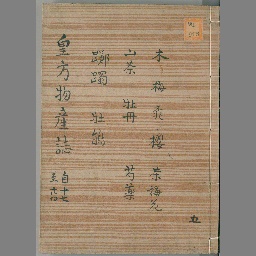 木 梅 桜 櫻 茱梅花
山茶 牡丹 芍藥
躑躅 牡鵑
皇方物產誌
自十七
至廿
五